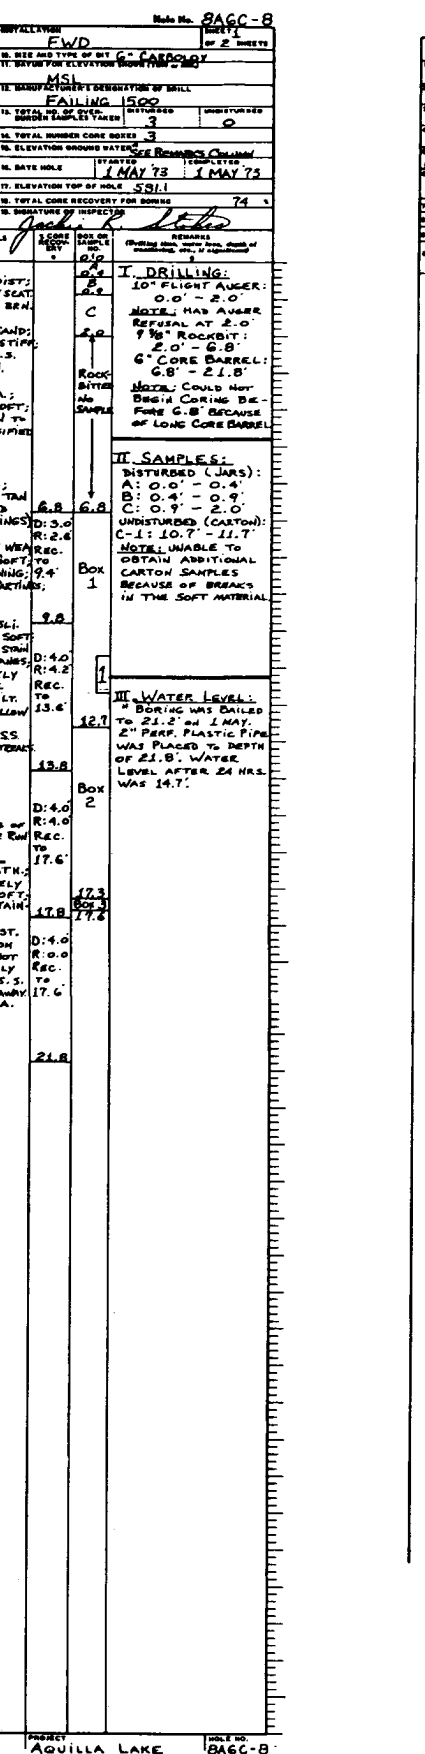 Hole No. 8A6C-8
INSTALLATION
FWD
SHEET 1
OF 2 SHEETS
10. SIZE AND TYPE OF BIT 6" CARBOLOY
11. DATUM FOR ELEVATION SHOWN
MSL
12. MANUFACTURER'S DESIGNATION OF DRILL
FAILING 1500
13. TOTAL NO. OF OVER-
BURDEN SAMPLES TAKEN
DISTURBED
3
UNDISTURBED
0
14. TOTAL NUMBER CORE BOXES 3
15. ELEVATION GROUND WATER SEE REMARKS COLUMN
16. DATE HOLE
STARTED
1 MAY '73
COMPLETED
1 MAY '73
17. ELEVATION TOP OF HOLE 551.1
18. TOTAL CORE RECOVERY FOR BORING 74 %
19. SIGNATURE OF INSPECTOR
% CORE
RECOV-
ERY
BOX OR
SAMPLE
NO.
REMARKS
(Drilling time, water loss, depth of
weathering, etc., if significant)
0.0
A
0.4
B
0.9
C
2.0
ROCK-
BITTED
NO
SAMPLE
6.8
6.8
D: 3.0
R: 2.6
REC.
TO
9.4'
Box
1
9.8
D: 4.0
R: 4.2
REC.
TO
13.6'
1
12.7
13.8
Box
2
D: 4.0
R: 4.0
REC.
TO
17.6'
17.3
Box 3
17.8
17.6
D: 4.0
R: 0.0
REC.
TO
17.6'
21.8
I. DRILLING:
10" FLIGHT AUGER:
0.0' - 2.0'
NOTE: HAD AUGER
REFUSAL AT 2.0'
9 7/8" ROCKBIT:
2.0' - 6.8'
6" CORE BARREL:
6.8' - 21.8'
NOTE: COULD NOT
BEGIN CORING BE-
FORE 6.8' BECAUSE
OF LONG CORE BARREL
II. SAMPLES:
DISTURBED (JARS):
A: 0.0' - 0.4'
B: 0.4' - 0.9'
C: 0.9' - 2.0'
UNDISTURBED (CARTON):
C-1: 10.7' - 11.7'
NOTE: UNABLE TO
OBTAIN ADDITIONAL
CARTON SAMPLES
BECAUSE OF BREAKS
IN THE SOFT MATERIAL.
III. WATER LEVEL:
BORING WAS BAILED
TO 21.2' ON 1 MAY.
2" PERF. PLASTIC PIPE
WAS PLACED TO DEPTH
OF 21.8'. WATER
LEVEL AFTER 24 HRS.
WAS 14.7'.
PROJECT
AQUILLA LAKE
HOLE NO.
8A6C-8